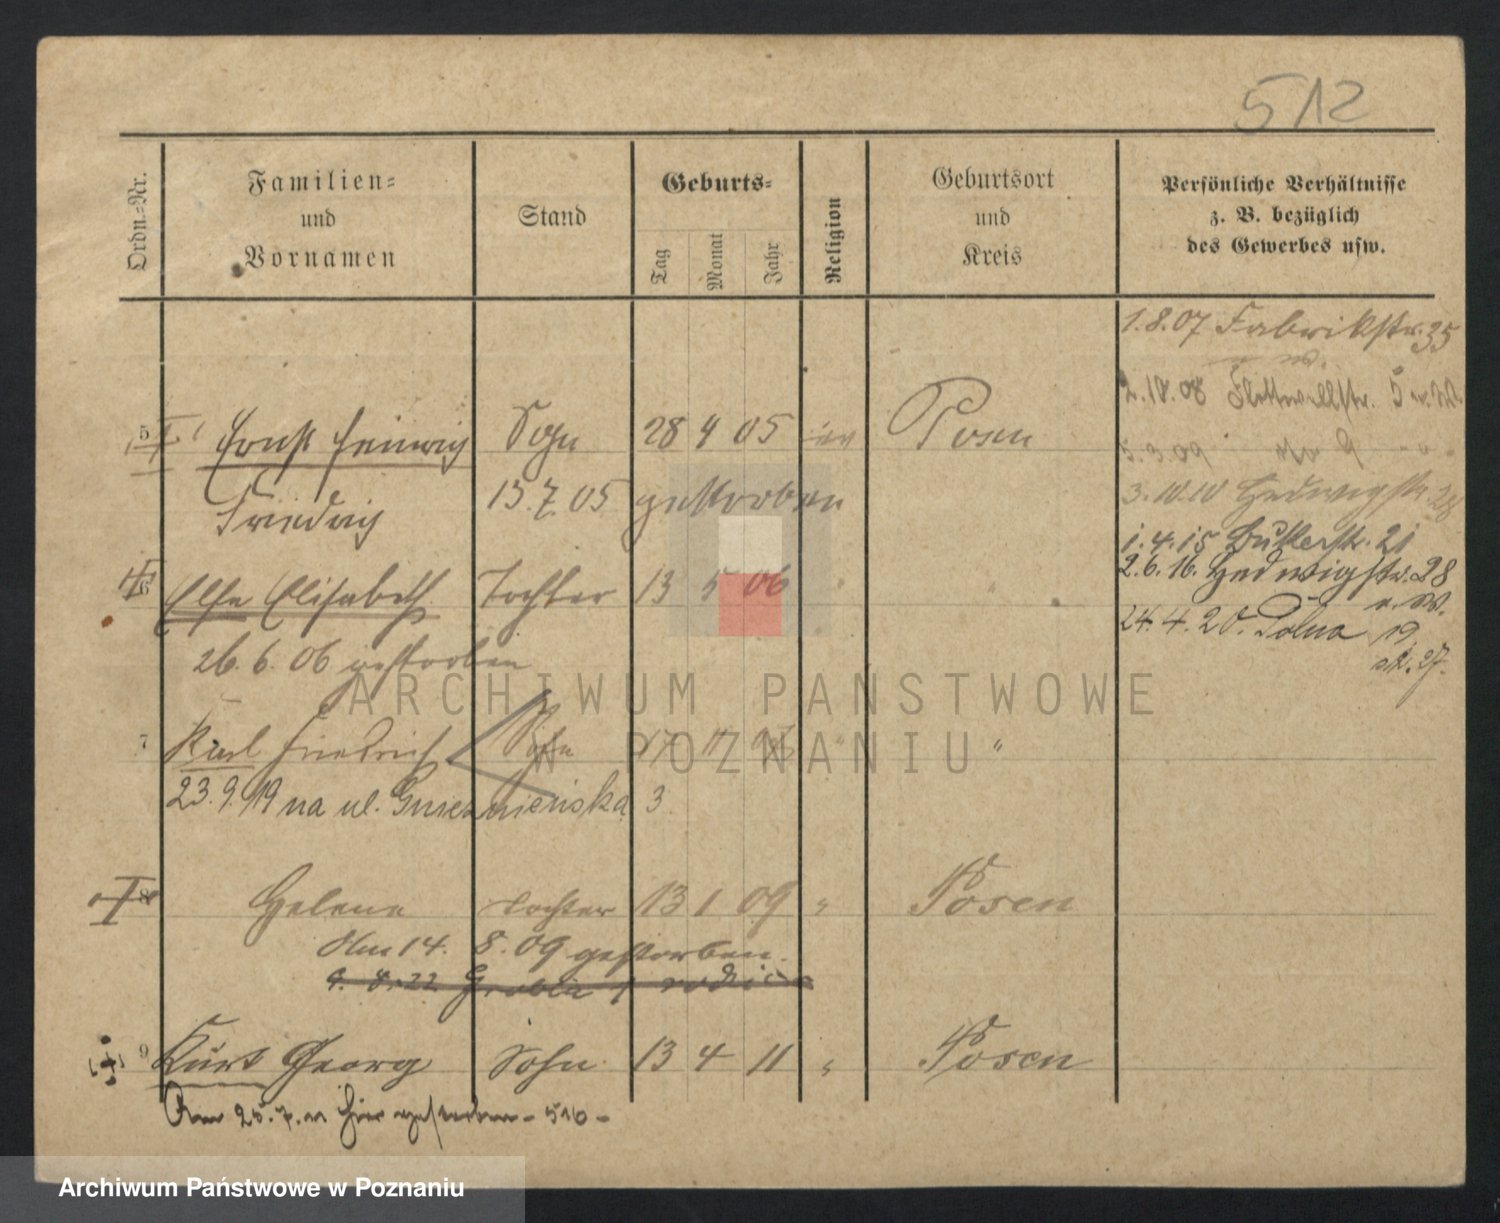 512
Ordn.-Nr.
Familien-
und
Vornamen
Stand
Geburts-
Tag
Monat
Jahr
Religion
Geburtsort
und
Kreis
Persönliche Verhältnisse
z. B. bezüglich
des Gewerbes usw.
1.8.07 Fabrikstr. 35
2.10.08 Flottwellstr. 5
5.3.09 9
3.10.10 Hedwigstr. 28
1.4.15 21
2.6.16. Hedwigstr. 28
24.4.20. Polna 19
27.
5 Ernst Heinrich Sohn 28 4 05 ev Posen
Friedrich 15.7.05 gestorben
6 Else Elisabeth Tochter 13 5 06 "
26.6.06 gestorben
7 Karl Friedrich Sohn 17 "
23.9.19 na ul. Gnieznieńska 3
8 Helene Tochter 13 1 09 " Posen
Am 14. 8. 09 gestorben.
9 Kurt Georg Sohn 13 4 11 " Posen
Am 25.7.11 hier gestorben - 510 -
ARCHIWUM PAŃSTWOWE
W POZNANIU
Archiwum Państwowe w Poznaniu